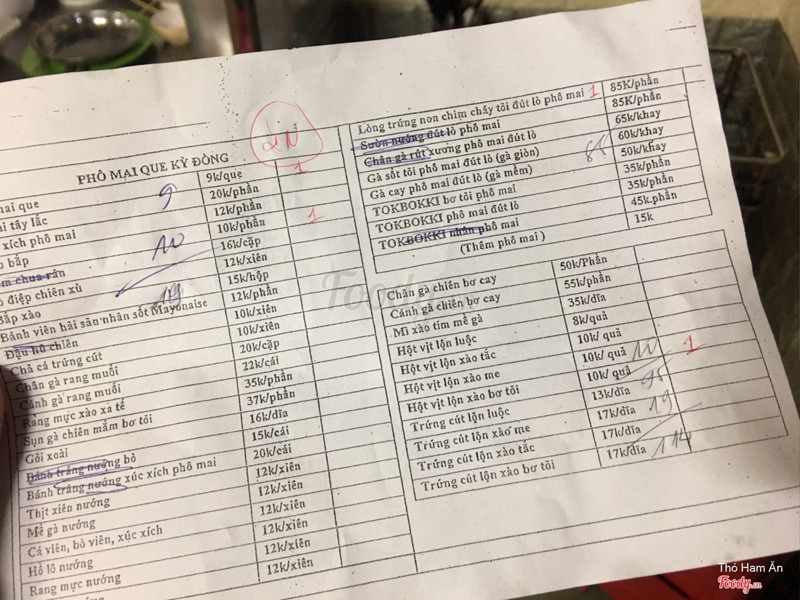 PHÔ MAI QUE KỲ ĐỒNG
mai que 9k/que 1
ai tây lắc 9 20k/phần
xích phô mai 12k/phần
u bắp 10k/phần 1
m chua rán 10 16k/cặp
ồ điệp chiên xù 12k/xiên
Bắp xào 19 15k/hộp
Bánh viên hải sản nhân sốt Mayonaise 12k/phần
Đậu hũ chiên 10k/xiên
Chả cá trứng cút 10k/xiên
Chân gà rang muối 20k/cặp
Cánh gà rang muối 22k/cái
Răng mực xào xả tế 35k/phần
Sụn gà chiên mắm bơ tỏi 37k/phần
Gỏi xoài 16k/dĩa
Bánh tráng nướng bò 15k/cái
Bánh tráng nướng xúc xích phô mai 20k/cái
Thịt xiên nướng 12k/xiên
Mề gà nướng 12k/xiên
Cá viên, bò viên, xúc xích 12k/xiên
Hồ lô nướng 12k/xiên
Rang mực nướng 12k/xiên
12k/xiên
Lòng trứng non chim cháy tỏi đút lò phô mai 1 85K/phần
Sườn nướng đút lò phô mai 85K/phần
Chân gà rút xương phô mai đút lò 65k/khay
Gà sốt tỏi phô mai đút lò (gà giòn) 60k/khay
Gà cay phô mai đút lò (gà mềm) 85 50k/khay
TOKBOKKI bơ tỏi phô mai 35k/phần
TOKBOKKI phô mai đút lò 35k/phần
TOKBOKKI nhân phô mai 45k.phần
(Thêm phô mai ) 15k
Chân gà chiên bơ cay 50k/Phần
Cánh gà chiên bơ cay 55k/phần
Mì xào tim mề gà 35k/dĩa
Hột vịt lộn luộc 8k/quả
Hột vịt lộn xào tắc 10k/quả
Hột vịt lộn xào me 10k/ quả 10 1
Hột vịt lộn xào bơ tỏi 10k/ quả 95
Trứng cút lộn luộc 13k/dĩa 19
Trứng cút lộn xào me 17k/dĩa
Trứng cút lộn xào tắc 17k/dĩa 114
Trứng cút lộn xào bơ tỏi 17k/dĩa
Foody
Thỏ Ham Ăn
Foody.vn